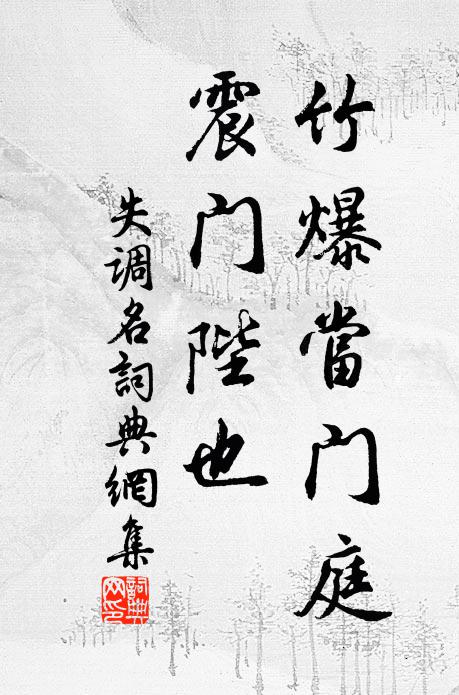 竹爆當门庭
震门陛也
失调名詞典網集
詞典网印